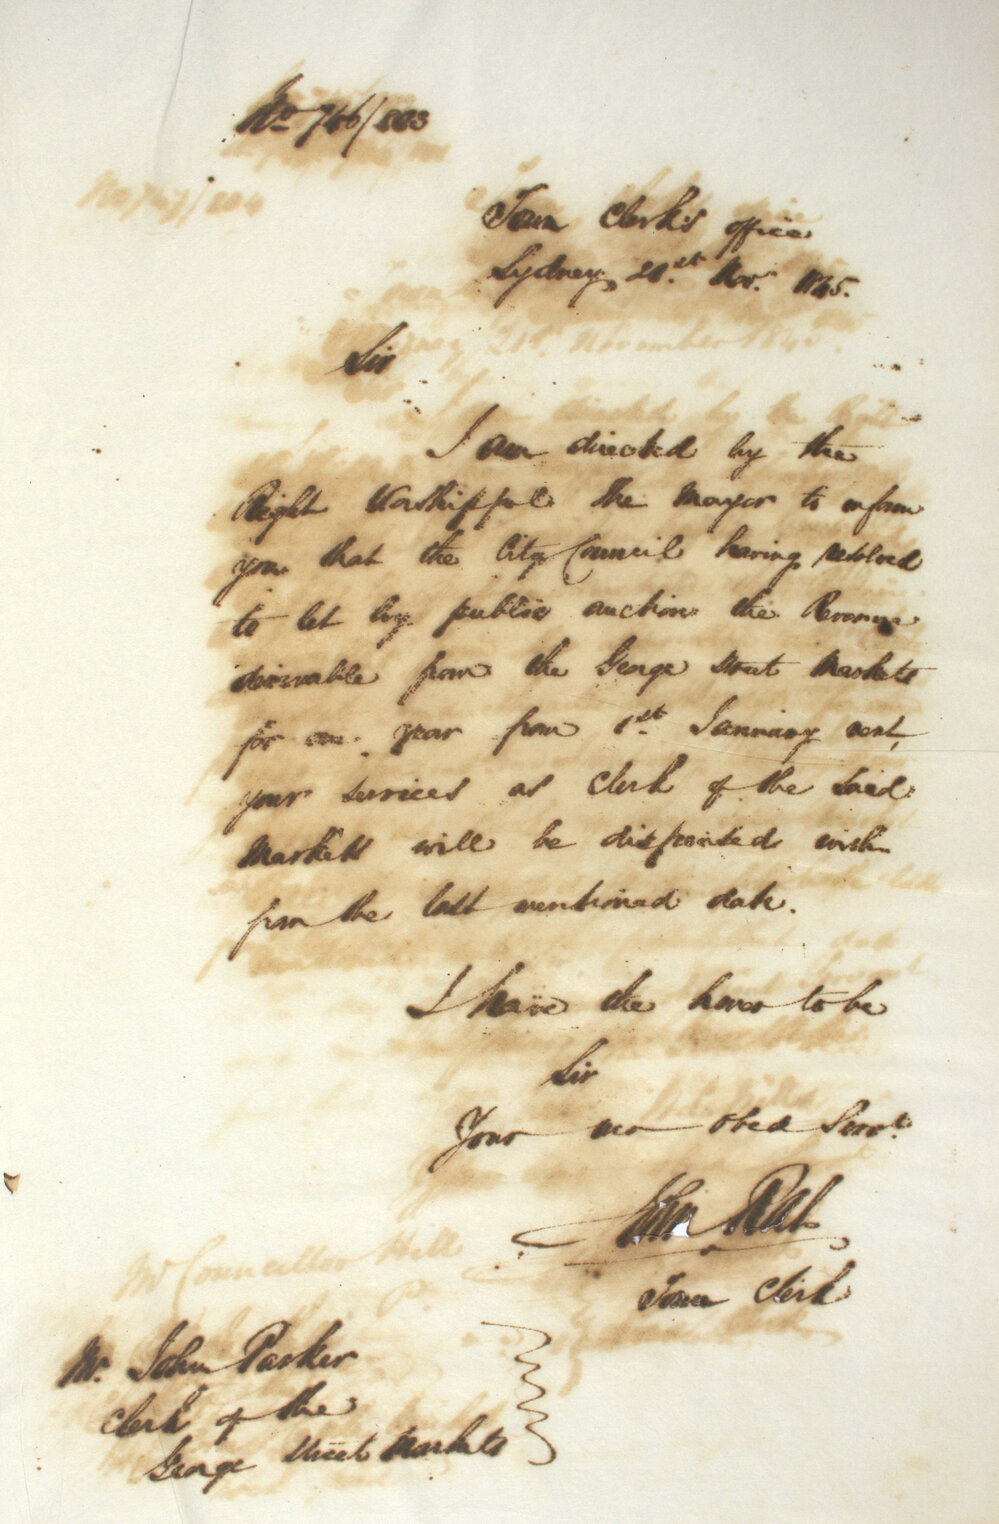 No 746/803
Town Clerk's office
Sydney, 21st. Nov. 1845.
Sir
I am directed by the
Right Worshipful the Mayor to inform
you that the City Council having resolved
to let by public auction the Revenue
derivable from the George Street Markets
for one year from 1st. January next,
your services as Clerk of the said
Markets will be dispensed with
from the last mentioned date.
I have the honor to be
Sir
Your obed Servt.
John
Town Clerk
Mr. John Parker
Clerk of the
George Street Markets
No 747/804
21st. November 184
directed by the Right
Mr Councillor Hill